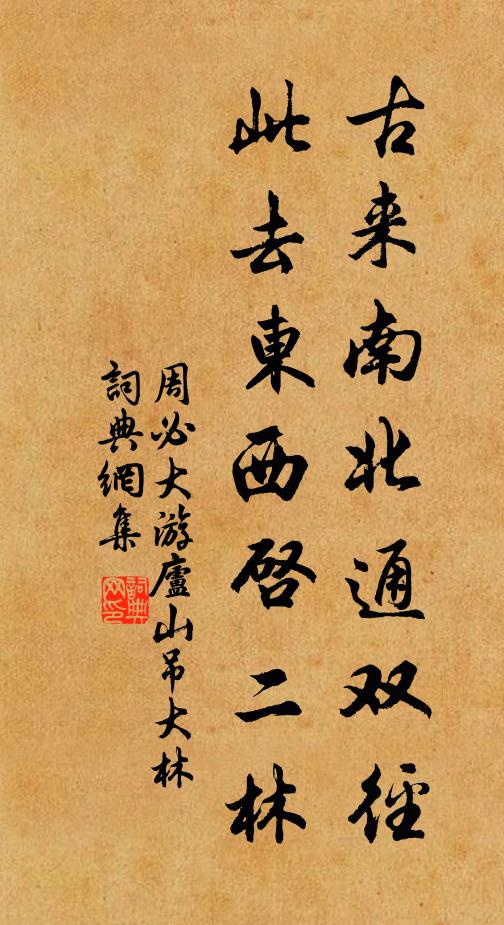 古来南北通双径
此去東西啓二林
周必大游廬山吊大林
詞典網集
詞典网印